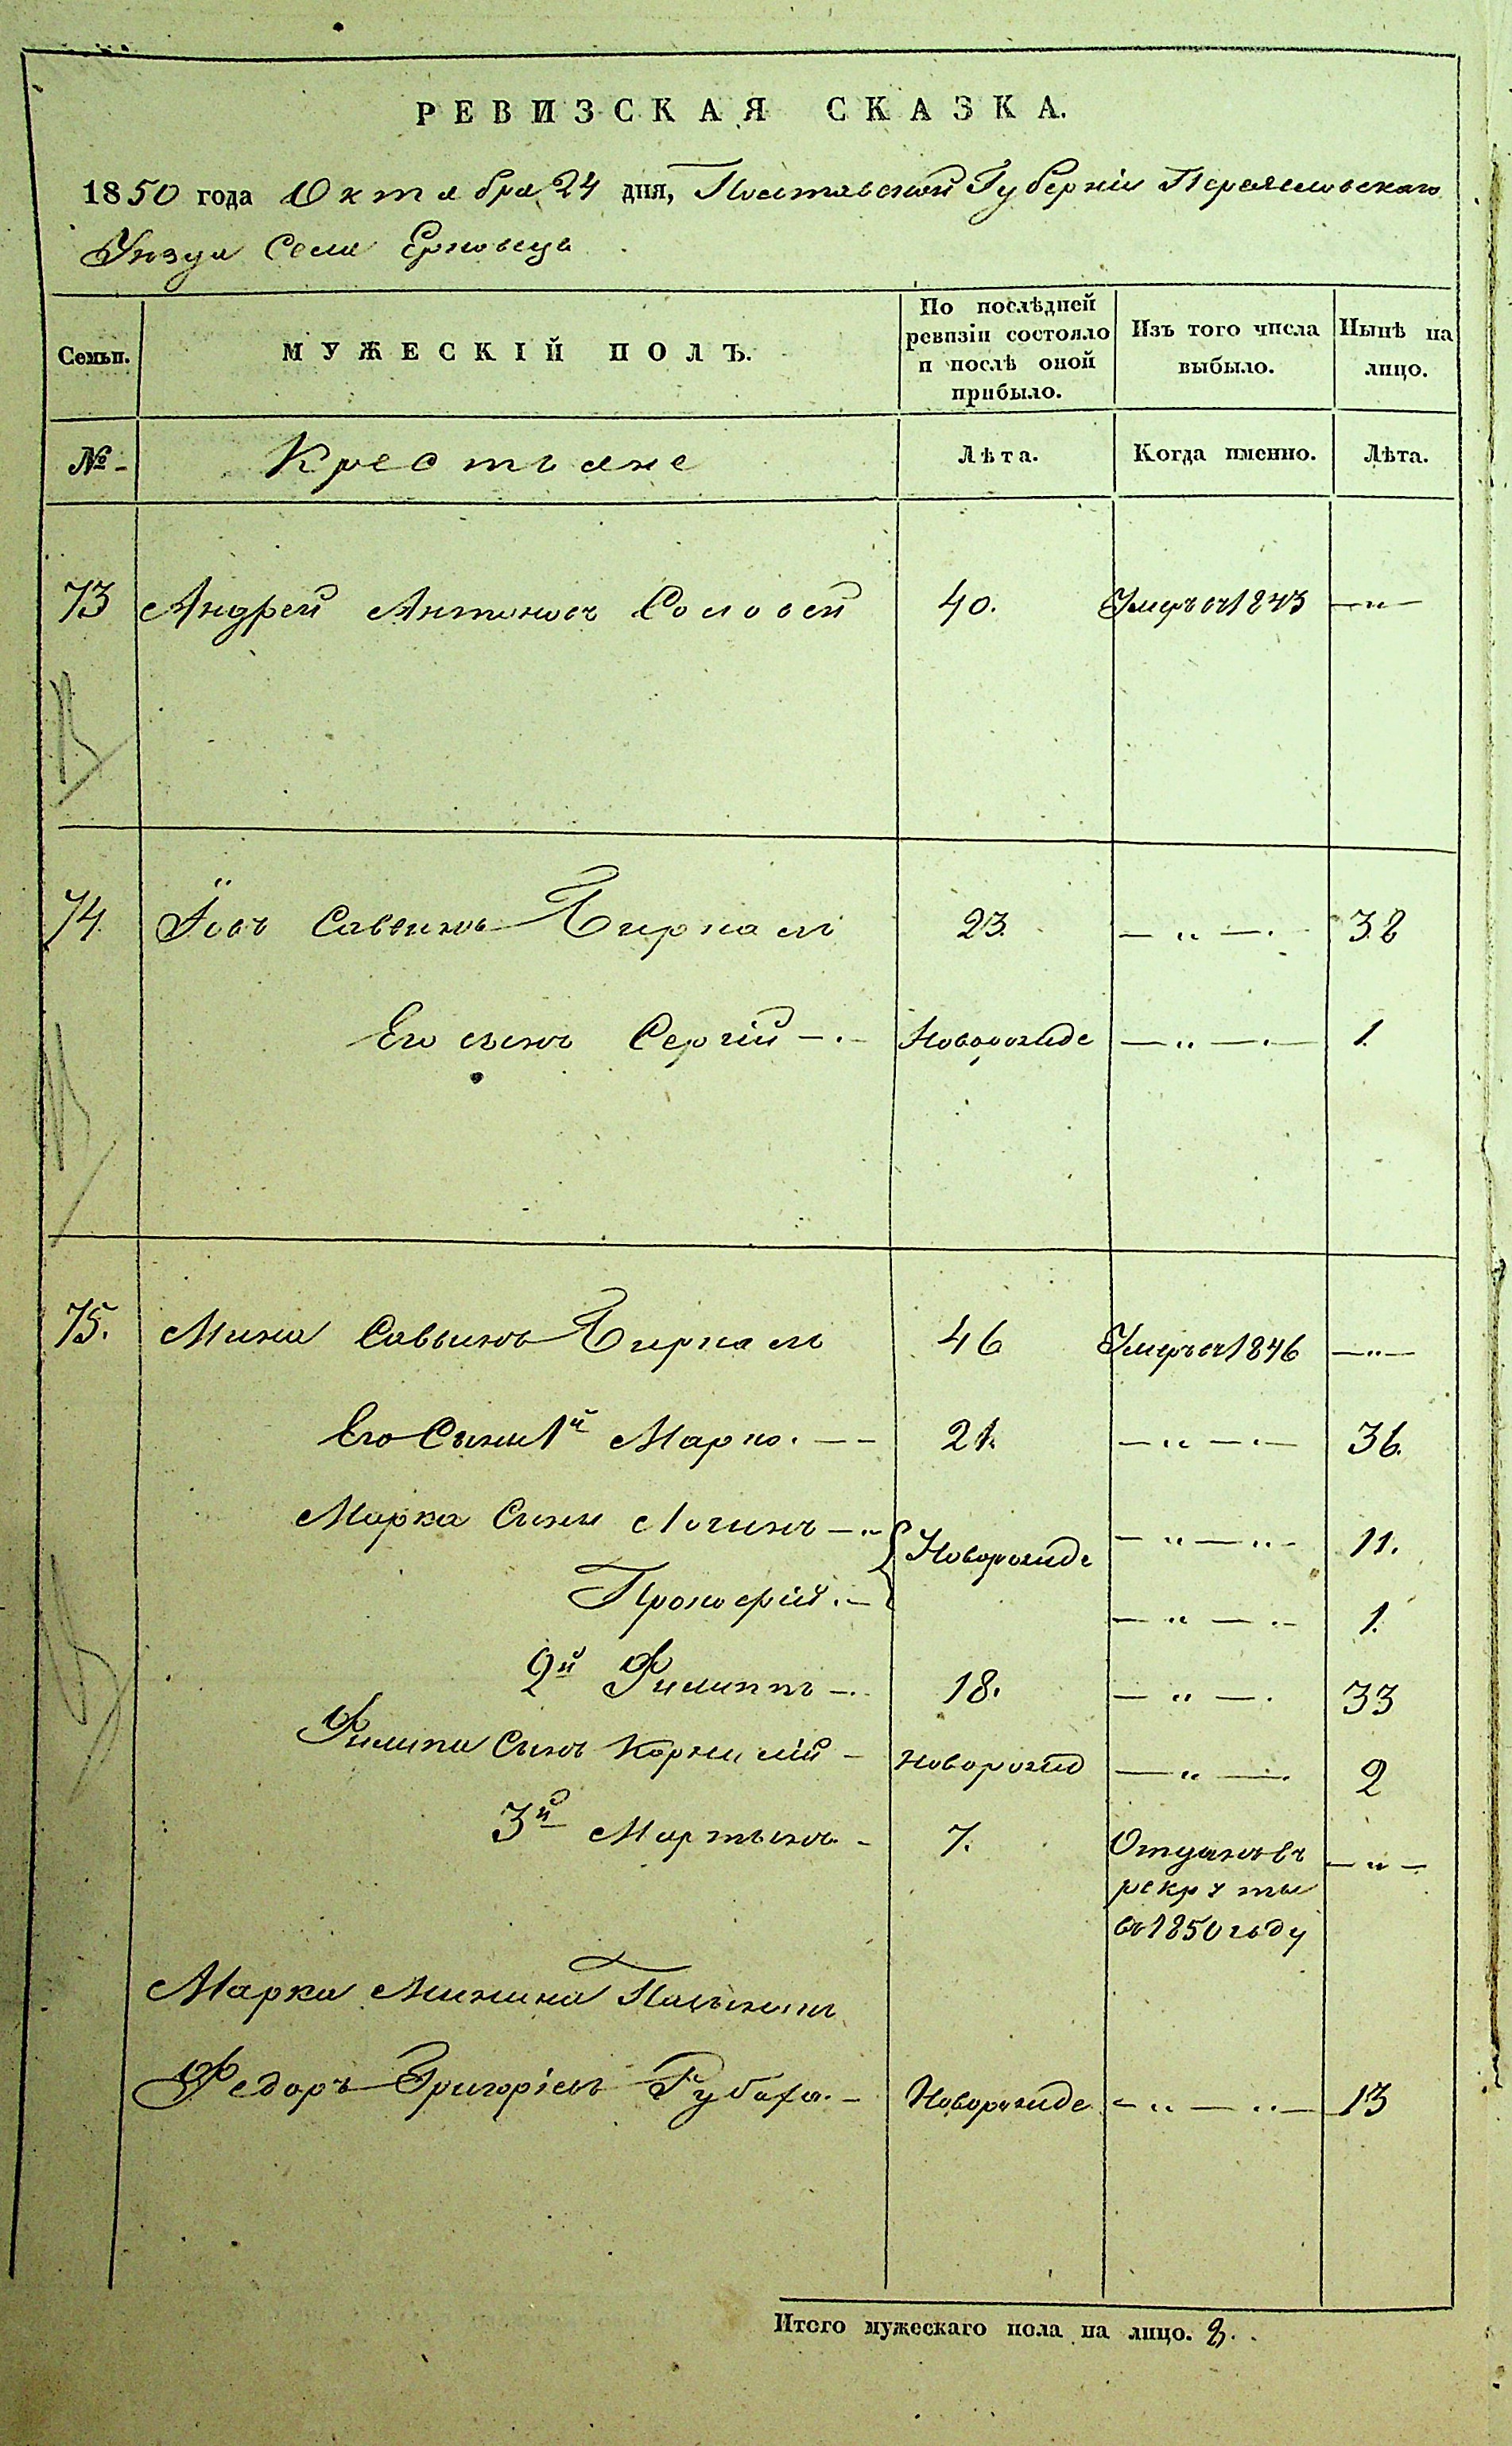 РЕВИЗСКАЯ СКАЗКА.
1850 года Октября 24 дня, Полтавской Губерніи Переяславскаго
Уѣзда Села Ерковець
Семьи.
МУЖЕСКІЙ ПОЛЪ.
По послѣдней
ревизіи состояло
и послѣ оной
прибыло.
Изъ того числа
выбыло.
Нынѣ на
лицо.
№
Крестьяне
Лѣта.
Когда именно.
Лѣта.
73 Андрей Антоновъ Соловей 40. Умеръ въ 1843 —"—
74 Іовъ Саввинъ 23. — " — . 38
Его сынъ Сергій — . — Новорожде — " — . — 1.
75. Мина Саввинъ 46 Умеръ въ 1846 —"—
Его Сыны 1й Марко. — — 21. — " — . — 36.
Марка Сыны Логинъ — .. Новорожде — " — " — 11.
Прокофій . — — " — .. — 1.
2й Филиппъ — . 18. — " — . 33
Филипа Сынъ Корнилій — новорожд — " — . 2
3й Мартынъ — 7. Отданъ въ — " —
рекруты
въ 1850 году
Марка Минина Пасынокъ
Федоръ Григорьевъ — Новорожде — " — " — 13
Итого мужескаго пола на лицо. 8.